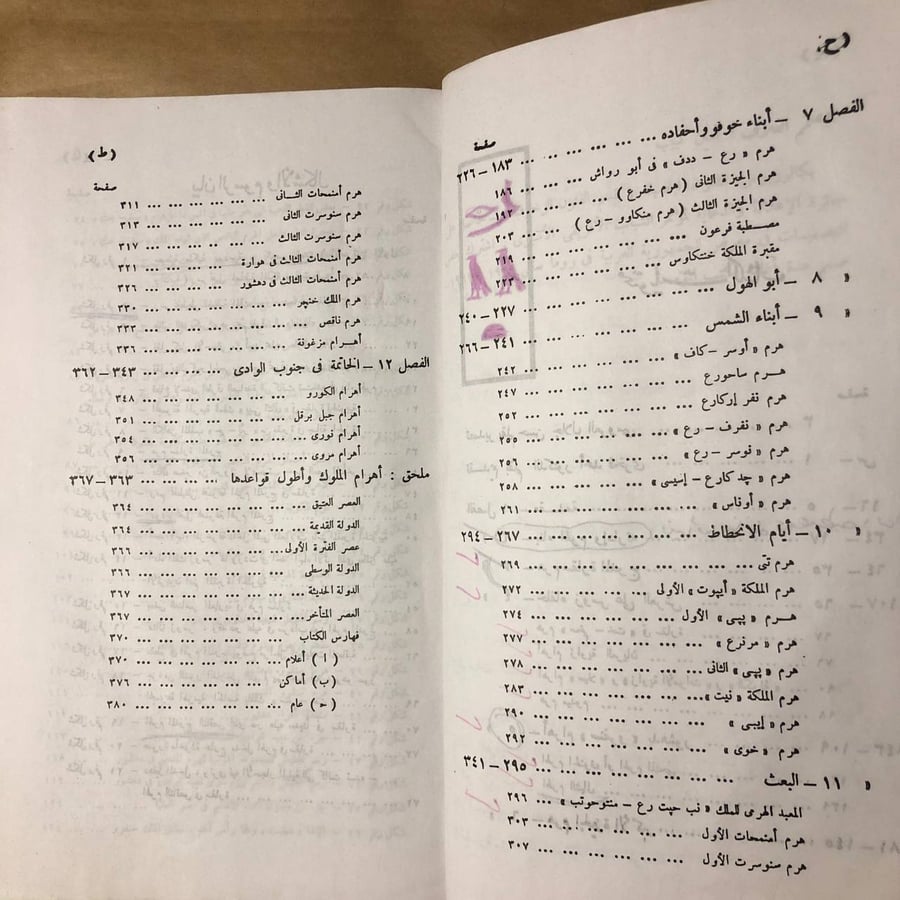 (ح)
صفحة
الفصل ٧ — أبناء خوفو وأحفاده ... ... ... ... ... ١٨٣—٢٢٦
هرم « رع — ددف » فى أبو رواش ... ... ... ... ١٨٦
هرم الجيزة الثانى (هرم خفرع) ... ... ... ... ١٩٢
هرم الجيزة الثالث (هرم منكاو—رع) ... ... ... ٢٠٣
مصطبة فرعون ... ... ... ... ... ... ٢١٩
مقبرة الملكة خنتكاوس ... ... ... ... ... ٢٢٣
« ٨ — أبو الهول ... ... ... ... ... ... ٢٢٧—٢٤٠
« ٩ — أبناء الشمس ... ... ... ... ... ... ٢٤١—٢٦٦
هرم « أوسر — كاف » ... ... ... ... ... ٢٤٢
هرم ساحورع ... ... ... ... ... ... ٢٤٧
هرم نفر إركارع ... ... ... ... ... ٢٥٢
هرم « نفرف — رع » ... ... ... ... ... ٢٥٥
هرم « نوسر — رع » ... ... ... ... ... ٢٥٦
هرم « چد كارع — إسيسى » ... ... ... ... ٢٥٨
هرم « أوناس » ... ... ... ... ... ... ٢٦١
« ١٠ — أيام الانحطاط ... ... ... ... ... ٢٦٧—٢٩٤
هرم تتى ... ... ... ... ... ... ... ٢٦٩
الملكة « أيپوت » الأول ... ... ... ... ... ٢٧٢
هرم « پيپى » الأول ... ... ... ... ... ٢٧٤
هرم « مرنرع » ... ... ... ... ... ... ٢٧٧
هرم « پيپى » الثانى ... ... ... ... ... ٢٧٨
هرم الملكة « نيت » ... ... ... ... ... ... ٢٨٣
هرم « إيبى » ... ... ... ... ... ... ٢٩٠
هرم « خوى » ... ... ... ... ... ... ٢٩٢
« ١١ — البعث ... ... ... ... ... ... ... ٢٩٥—٣٤١
المعبد الهرمى للملك « نب حپت رع — منتوحوتب » ... ٢٩٦
هرم أمنمحات الأول ... ... ... ... ... ٣٠٣
هرم سنوسرت الأول ... ... ... ... ... ٣٠٧
(ط)
صفحة
هرم أمنمحات الثانى ... ... ... ... ... ... ٣١١
هرم سنوسرت الثانى ... ... ... ... ... ... ٣١٣
هرم سنوسرت الثالث ... ... ... ... ... ... ٣١٧
هرم أمنمحات الثالث فى هوارة ... ... ... ... ٣٢١
هرم أمنمحات الثالث فى دهشور ... ... ... ... ٣٢٦
هرم الملك خنچر ... ... ... ... ... ... ٣٣٠
هرم ناقص ... ... ... ... ... ... ... ٣٣٣
أهرام مزغونة ... ... ... ... ... ... ٣٣٦
الفصل ١٢ — الخاتمة فى جنوب الوادى ... ... ... ... ٣٤٣—٣٦٢
أهرام الكورو ... ... ... ... ... ... ٣٤٨
أهرام جبل برقل ... ... ... ... ... ... ٣٥١
أهرام نورى ... ... ... ... ... ... ٣٥٤
أهرام مروى ... ... ... ... ... ... ٣٥٦
ملحق : أهرام الملوك وأطول قواعدها ... ... ... ... ٣٦٣—٣٦٧
العصر العتيق ... ... ... ... ... ... ٣٦٤
الدولة القديمة ... ... ... ... ... ... ٣٦٤
عصر الفترة الأولى ... ... ... ... ... ... ٣٦٦
الدولة الوسطى ... ... ... ... ... ... ٣٦٦
الدولة الحديثة ... ... ... ... ... ... ٣٦٧
العصر المتأخر ... ... ... ... ... ... ٣٦٧
فهارس الكتاب ... ... ... ... ... ... ٣٧٠
(ا) أعلام ... ... ... ... ... ... ... ٣٧٠
(ب) أماكن ... ... ... ... ... ... ٣٧٦
(ح) عام ... ... ... ... ... ... ... ٣٨٠